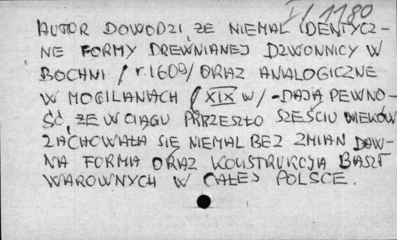 I/1180
AUTOR DOWODZI, ŻE NIEMAL IDENTYCZ-
NE FORMY DREWNIANEJ DZWONNICY W
BOCHNI /r.1609/ ORAZ ANALOGICZNE
W MOGILANACH /XIX w/ -DAJĄ PEWNO-
ŚĆ, ŻE W CIĄGU PRZESZŁO SZEŚCIU WIEKÓW
ZACHOWAŁA SIĘ NIEMAL BEZ ZMIAN DAW-
NA FORMA ORAZ KONSTRUKCJA BASZT
WAROWNYCH W CAŁEJ POLSCE.